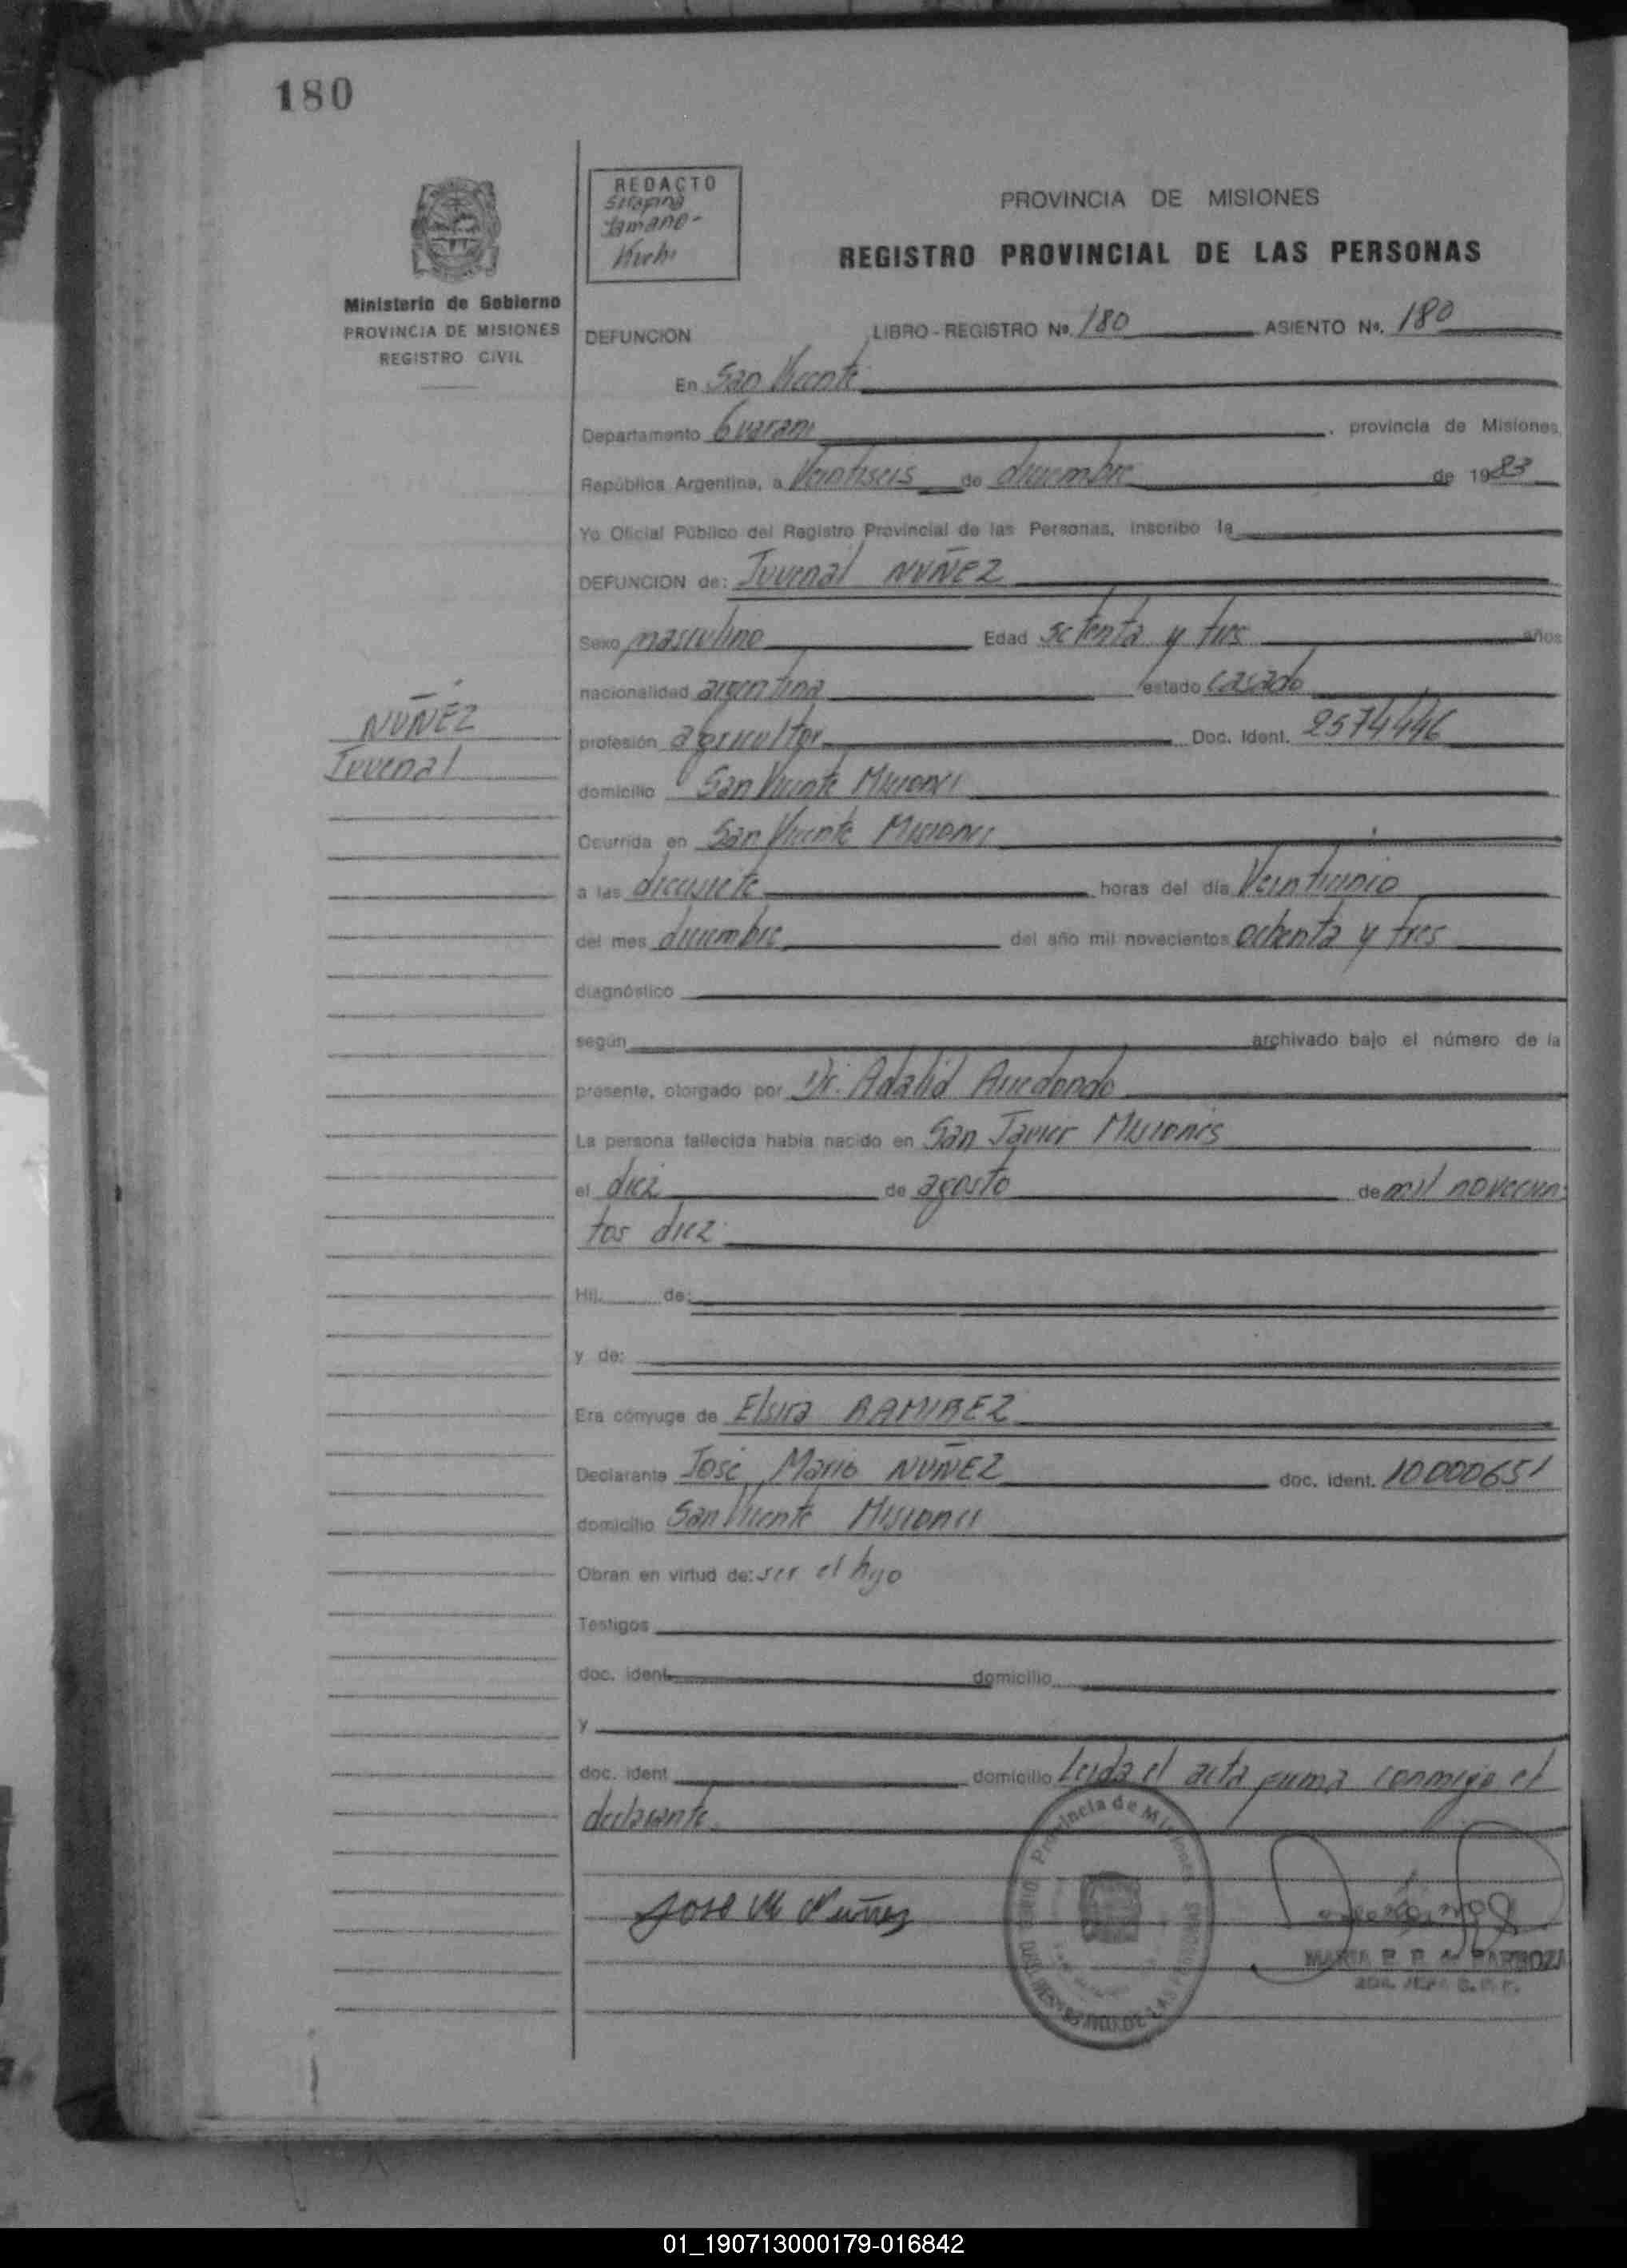 180
REDACTO
Serafina
Ministerio de Gobierno
PROVINCIA DE MISIONES
REGISTRO CIVIL
PROVINCIA DE MISIONES
REGISTRO PROVINCIAL DE LAS PERSONAS
DEFUNCION LIBRO - REGISTRO Nº. 180 ASIENTO Nº. 180
En San Vicente
Departamento Guarani , provincia de Misiones,
República Argentina, a Veintiseis de diciembre de 1983
Yo Oficial Público del Registro Provincial de las Personas, inscribo la
DEFUNCION de: Juvenal NUÑEZ
Sexo masculino Edad setenta y tres años
nacionalidad argentina estado casado
NUÑEZ
Juvenal
profesión agricultor Doc. Ident. 2574446
domicilio San Vicente Misiones
Ocurrida en San Vicente Misiones
a las diecisiete horas del día Veinticinco
del mes diciembre del año mil novecientos ochenta y tres
diagnóstico
según archivado bajo el número de la
presente, otorgado por Dr. Adalid Arredondo
La persona fallecida había nacido en San Javier Misiones
el diez de agosto de mil novecien
tos diez
Hij de:
y de:
Era cónyuge de Elsira RAMIREZ
Declarante José Mario NUÑEZ doc. ident. 10000651
domicilio San Vicente Misiones
Obran en virtud de: ser el hijo
Testigos
doc. ident. domicilio
y
doc. ident domicilio Leida el acta firma conmigo el
declarante
Provincia de Misiones
Jose M Nuñez
MARIA E. P. de BARBOZA
01_190713000179-016842